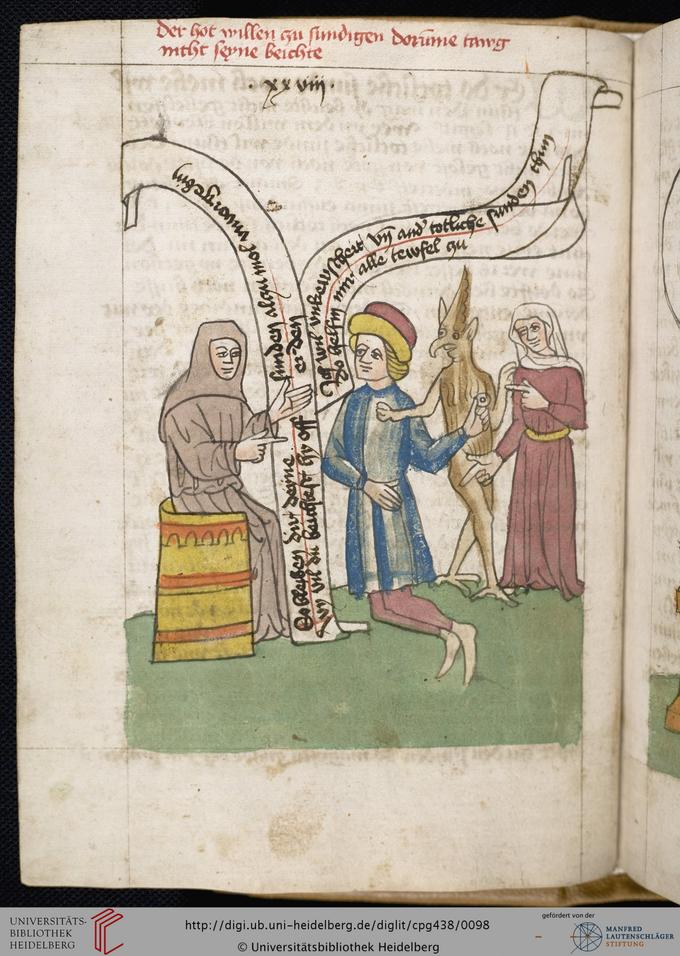 der hot willen zu sundigen dorume tawg
nicht seyne beichte
.xxviij.
So bleyben dir deyne sunden alzumol vnvorgebin
Wy vil du beichtest hy off erden
Ich wil vnkewscheit vn and totliche sunden thun
Do helfin mir alle tewfel zu
UNIVERSITÄTS-
BIBLIOTHEK
HEIDELBERG
http://digi.ub.uni-heidelberg.de/diglit/cpg438/0098
© Universitätsbibliothek Heidelberg
gefördert von der
MANFRED
LAUTENSCHLÄGER
STIFTUNG